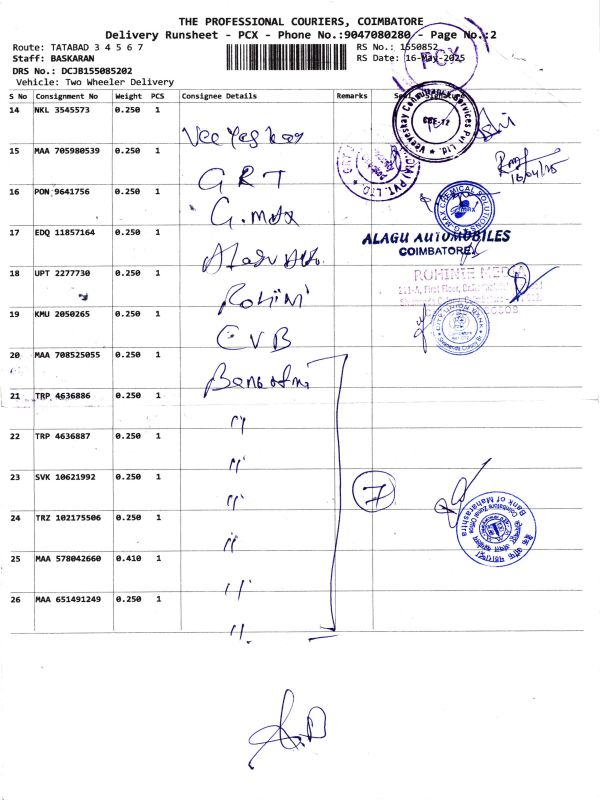 THE PROFESSIONAL COURIERS, COIMBATORE
Delivery Runsheet - PCX - Phone No.:9047080280 - Page No.:2
Route: TATABAD 3 4 5 6 7
RS No.: 1550852
Staff: BASKARAN
RS Date: 16-May-2025
DRS No.: DCJB155085202
Vehicle: Two Wheeler Delivery
PCX
S No Consignment No Weight PCS Consignee Details Remarks
14 NKL 3545573 0.250 1
Veeyes kay
Veeyeskay Consultancy Services Pvt. Ltd.
CBE-12
15 MAA 705980539 0.250 1
GRT
PVT. LTD.
16 PON 9641756 0.250 1
G. max
G.MAX CHEMICAL SOLUTIONS
17 EDQ 11857164 0.250 1
Alagu Auto.
ALAGU AUTOMOBILES
COIMBATORE
18 UPT 2277730 0.250 1
Rohini
ROHINIE
First Floor,
19 KMU 2050265 0.250 1
CVB
CITY UNION BANK
20 MAA 708525055 0.250 1
21 TRP 4636886 0.250 1
"
22 TRP 4636887 0.250 1
"
23 SVK 10621992 0.250 1
"
7
24 TRZ 102175506 0.250 1
"
Bank of Maharashtra
Coimbatore Zonal Office
25 MAA 578042660 0.410 1
"
26 MAA 651491249 0.250 1
"